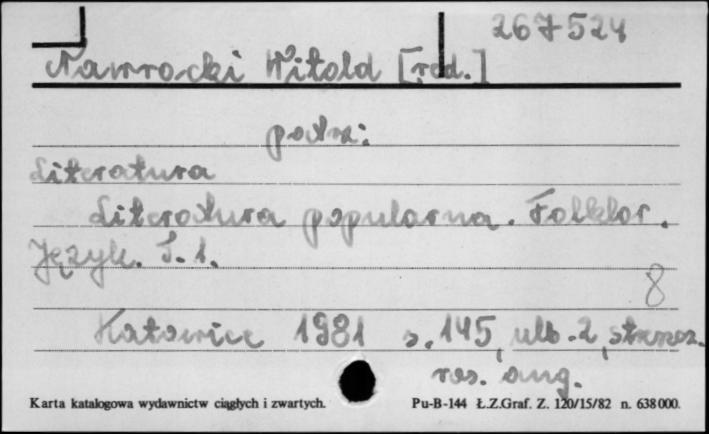 267524
Nawrocki Witold [red.]
patrz:
Literatura
Literatura popularna. Folklor.
Język. T. 1.
8
Katowice 1981 s. 145, ulb. 2, streszcz.
ros. ang.
Karta katalogowa wydawnictw ciągłych i zwartych. Pu-B-144 Ł.Z.Graf. Z. 120/15/82 n. 638000.